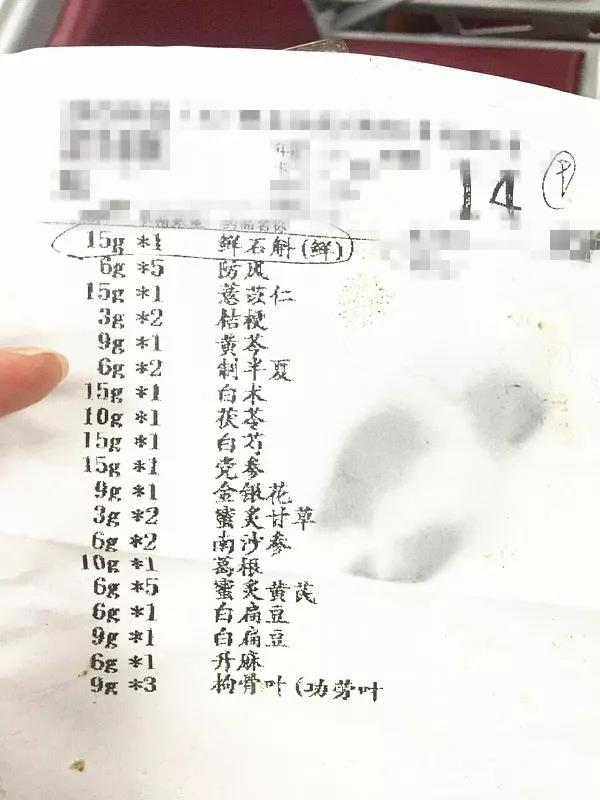 14 中
15g *1 鲜石斛(鲜)
6g *5 防风
15g *1 薏苡仁
3g *2 桔梗
9g *1 黄芩
6g *2 制半夏
15g *1 白术
10g *1 茯苓
15g *1 白芍
15g *1 党参
9g *1 金银花
3g *2 蜜炙甘草
6g *2 南沙参
10g *1 葛根
6g *5 蜜炙黄芪
6g *1 白扁豆
9g *1 白扁豆
6g *1 升麻
9g *3 枸骨叶(功劳叶